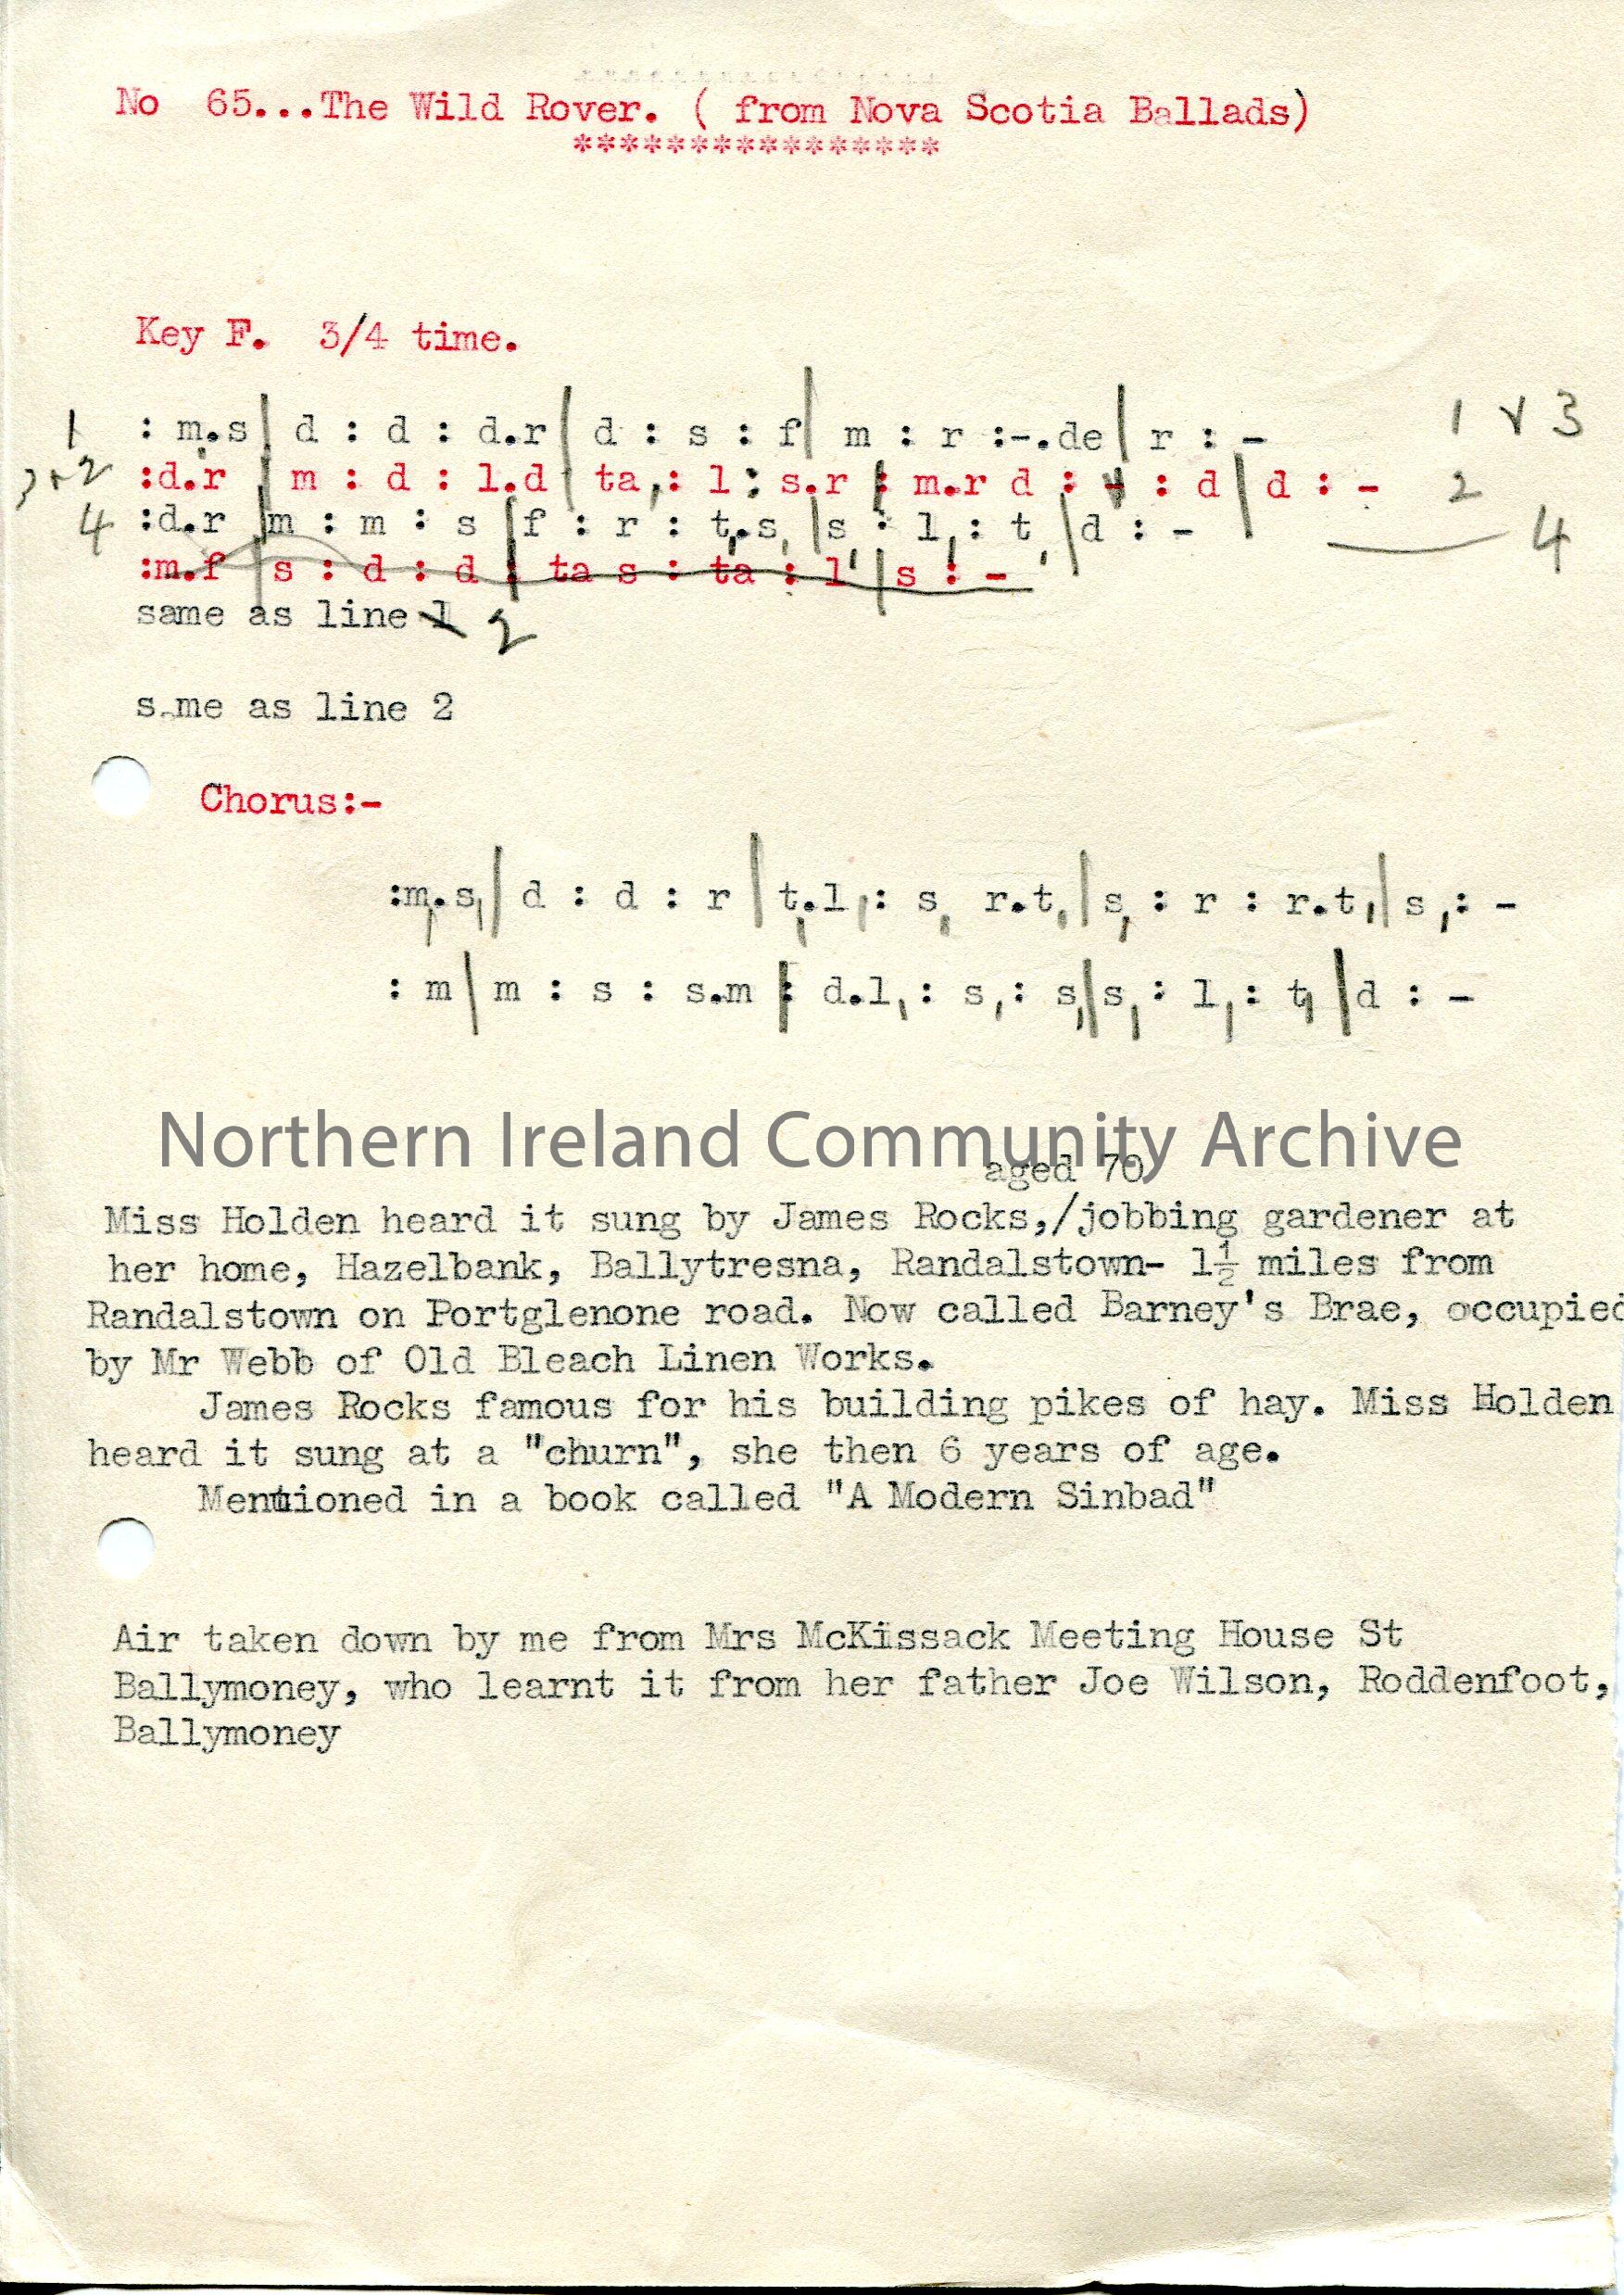 No 65...The Wild Rover. ( from Nova Scotia Ballads)
****************
Key F. 3/4 time.
1 : m.s | d : d : d.r | d : s : f | m : r :-.de | r : - 1 & 3
3+2 :d.r | m : d : l.d | ta,: l : s.r | m.r d : : d | d : - 2
4 :d.r | m : m : s | f : r : t,.s, | s, : l,: t, | d : - 4
:m.f | s : d : d | ta s : ta : l | s : -
same as line 1 2
s me as line 2
Chorus:-
:m,.s,| d : d : r | t,.l,: s, r.t,| s, : r : r.t,| s,: -
: m | m : s : s.m | d.l,: s,: s,| s,: l,: t,| d : -
Northern Ireland Community Archive
aged 70
Miss Holden heard it sung by James Rocks,/jobbing gardener at
her home, Hazelbank, Ballytresna, Randalstown- 1½ miles from
Randalstown on Portglenone road. Now called Barney's Brae, occupied
by Mr Webb of Old Bleach Linen Works.
James Rocks famous for his building pikes of hay. Miss Holden
heard it sung at a "churn", she then 6 years of age.
Mentioned in a book called "A Modern Sinbad"
Air taken down by me from Mrs McKissack Meeting House St
Ballymoney, who learnt it from her father Joe Wilson, Roddenfoot,
Ballymoney